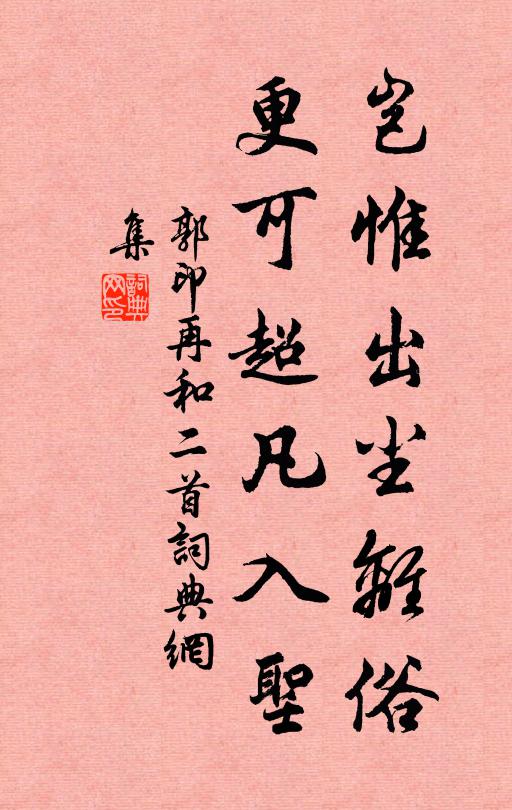 岂惟出尘離俗
更可超凡入聖
郭印再和二首詞典網
集
詞典网印